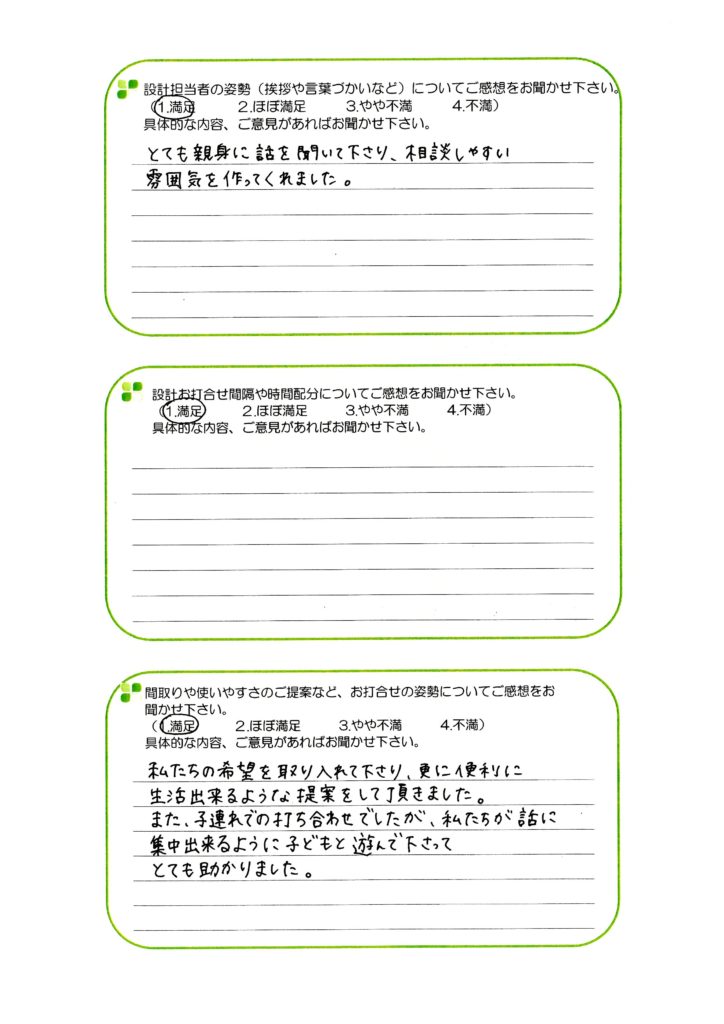 設計担当者の姿勢（挨拶や言葉づかいなど）についてご感想をお聞かせ下さい。
（1.満足　2.ほぼ満足　3.やや不満　4.不満）
具体的な内容、ご意見があればお聞かせ下さい。
とても親身に話を聞いて下さり、相談しやすい
雰囲気を作ってくれました。
設計お打合せ間隔や時間配分についてご感想をお聞かせ下さい。
（1.満足　2.ほぼ満足　3.やや不満　4.不満）
具体的な内容、ご意見があればお聞かせ下さい。
間取りや使いやすさのご提案など、お打合せの姿勢についてご感想をお
聞かせ下さい。
（1.満足　2.ほぼ満足　3.やや不満　4.不満）
具体的な内容、ご意見があればお聞かせ下さい。
私たちの希望を取り入れて下さり、更に便利に
生活出来るような提案をして頂きました。
また、子連れでの打ち合わせでしたが、私たちが話に
集中出来るように子どもと遊んで下さって
とても助かりました。